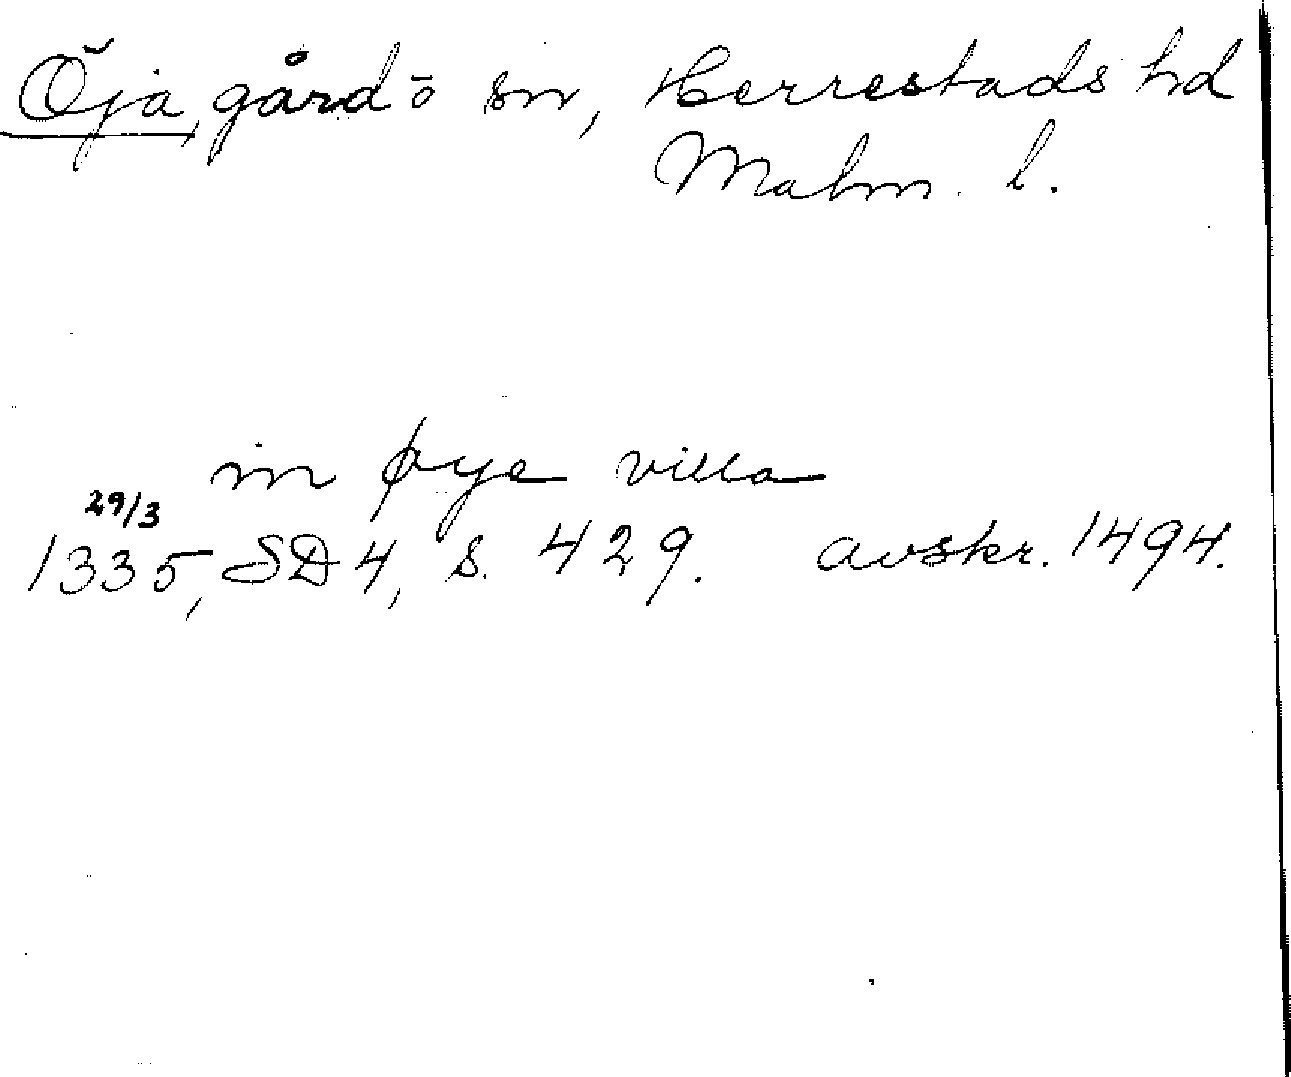 Öja, gård o sn, Herrestads hd
Malm. l.
in øye villa
29/3
1335, SD 4, s. 429. avskr. 1494.